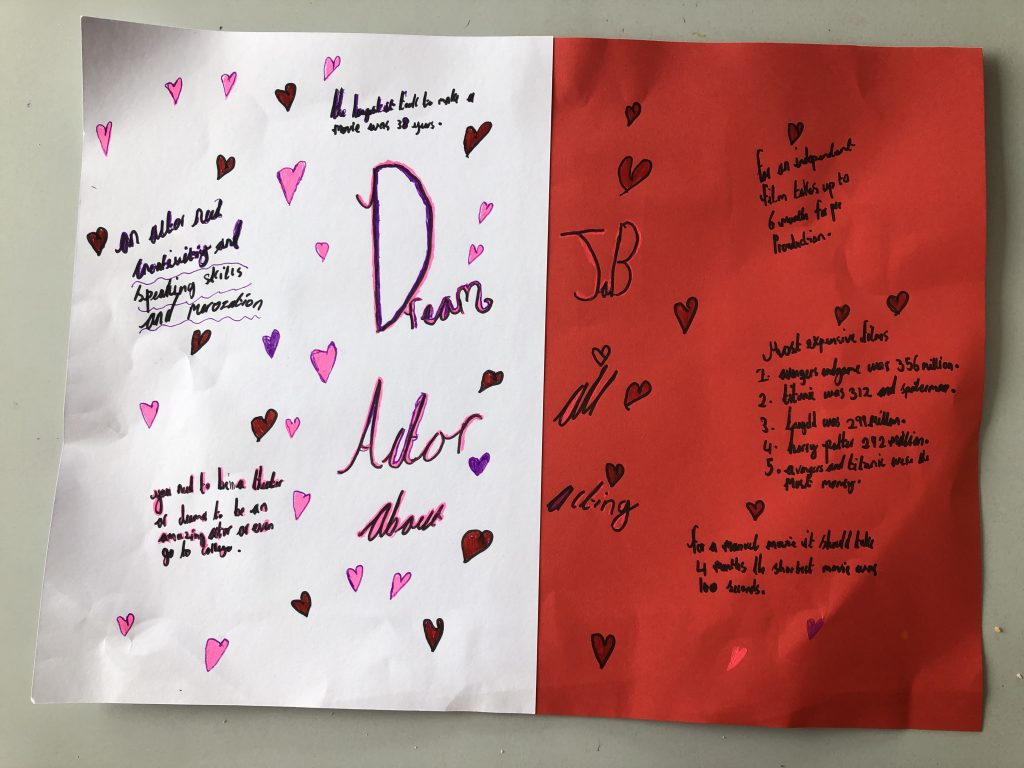 the longest it took to make a
movie was 38 years.
Dream
an actor need
and
speaking skills
and
Actor
about
you need to being a theater
or drama to be an
amazing actor or even
go to college.
JoB
all
acting
for an independant
film takes up to
6 month for pre
Production.
Most expensive films
1. avengers endgame was 356 million.
2. titanic was 312 and spiderman.
3. was 291 million.
4. harry potter 272 million.
5. avengers and titanic were the
most money.
for a movie it should take
4 months the shortest movie was
100 seconds.